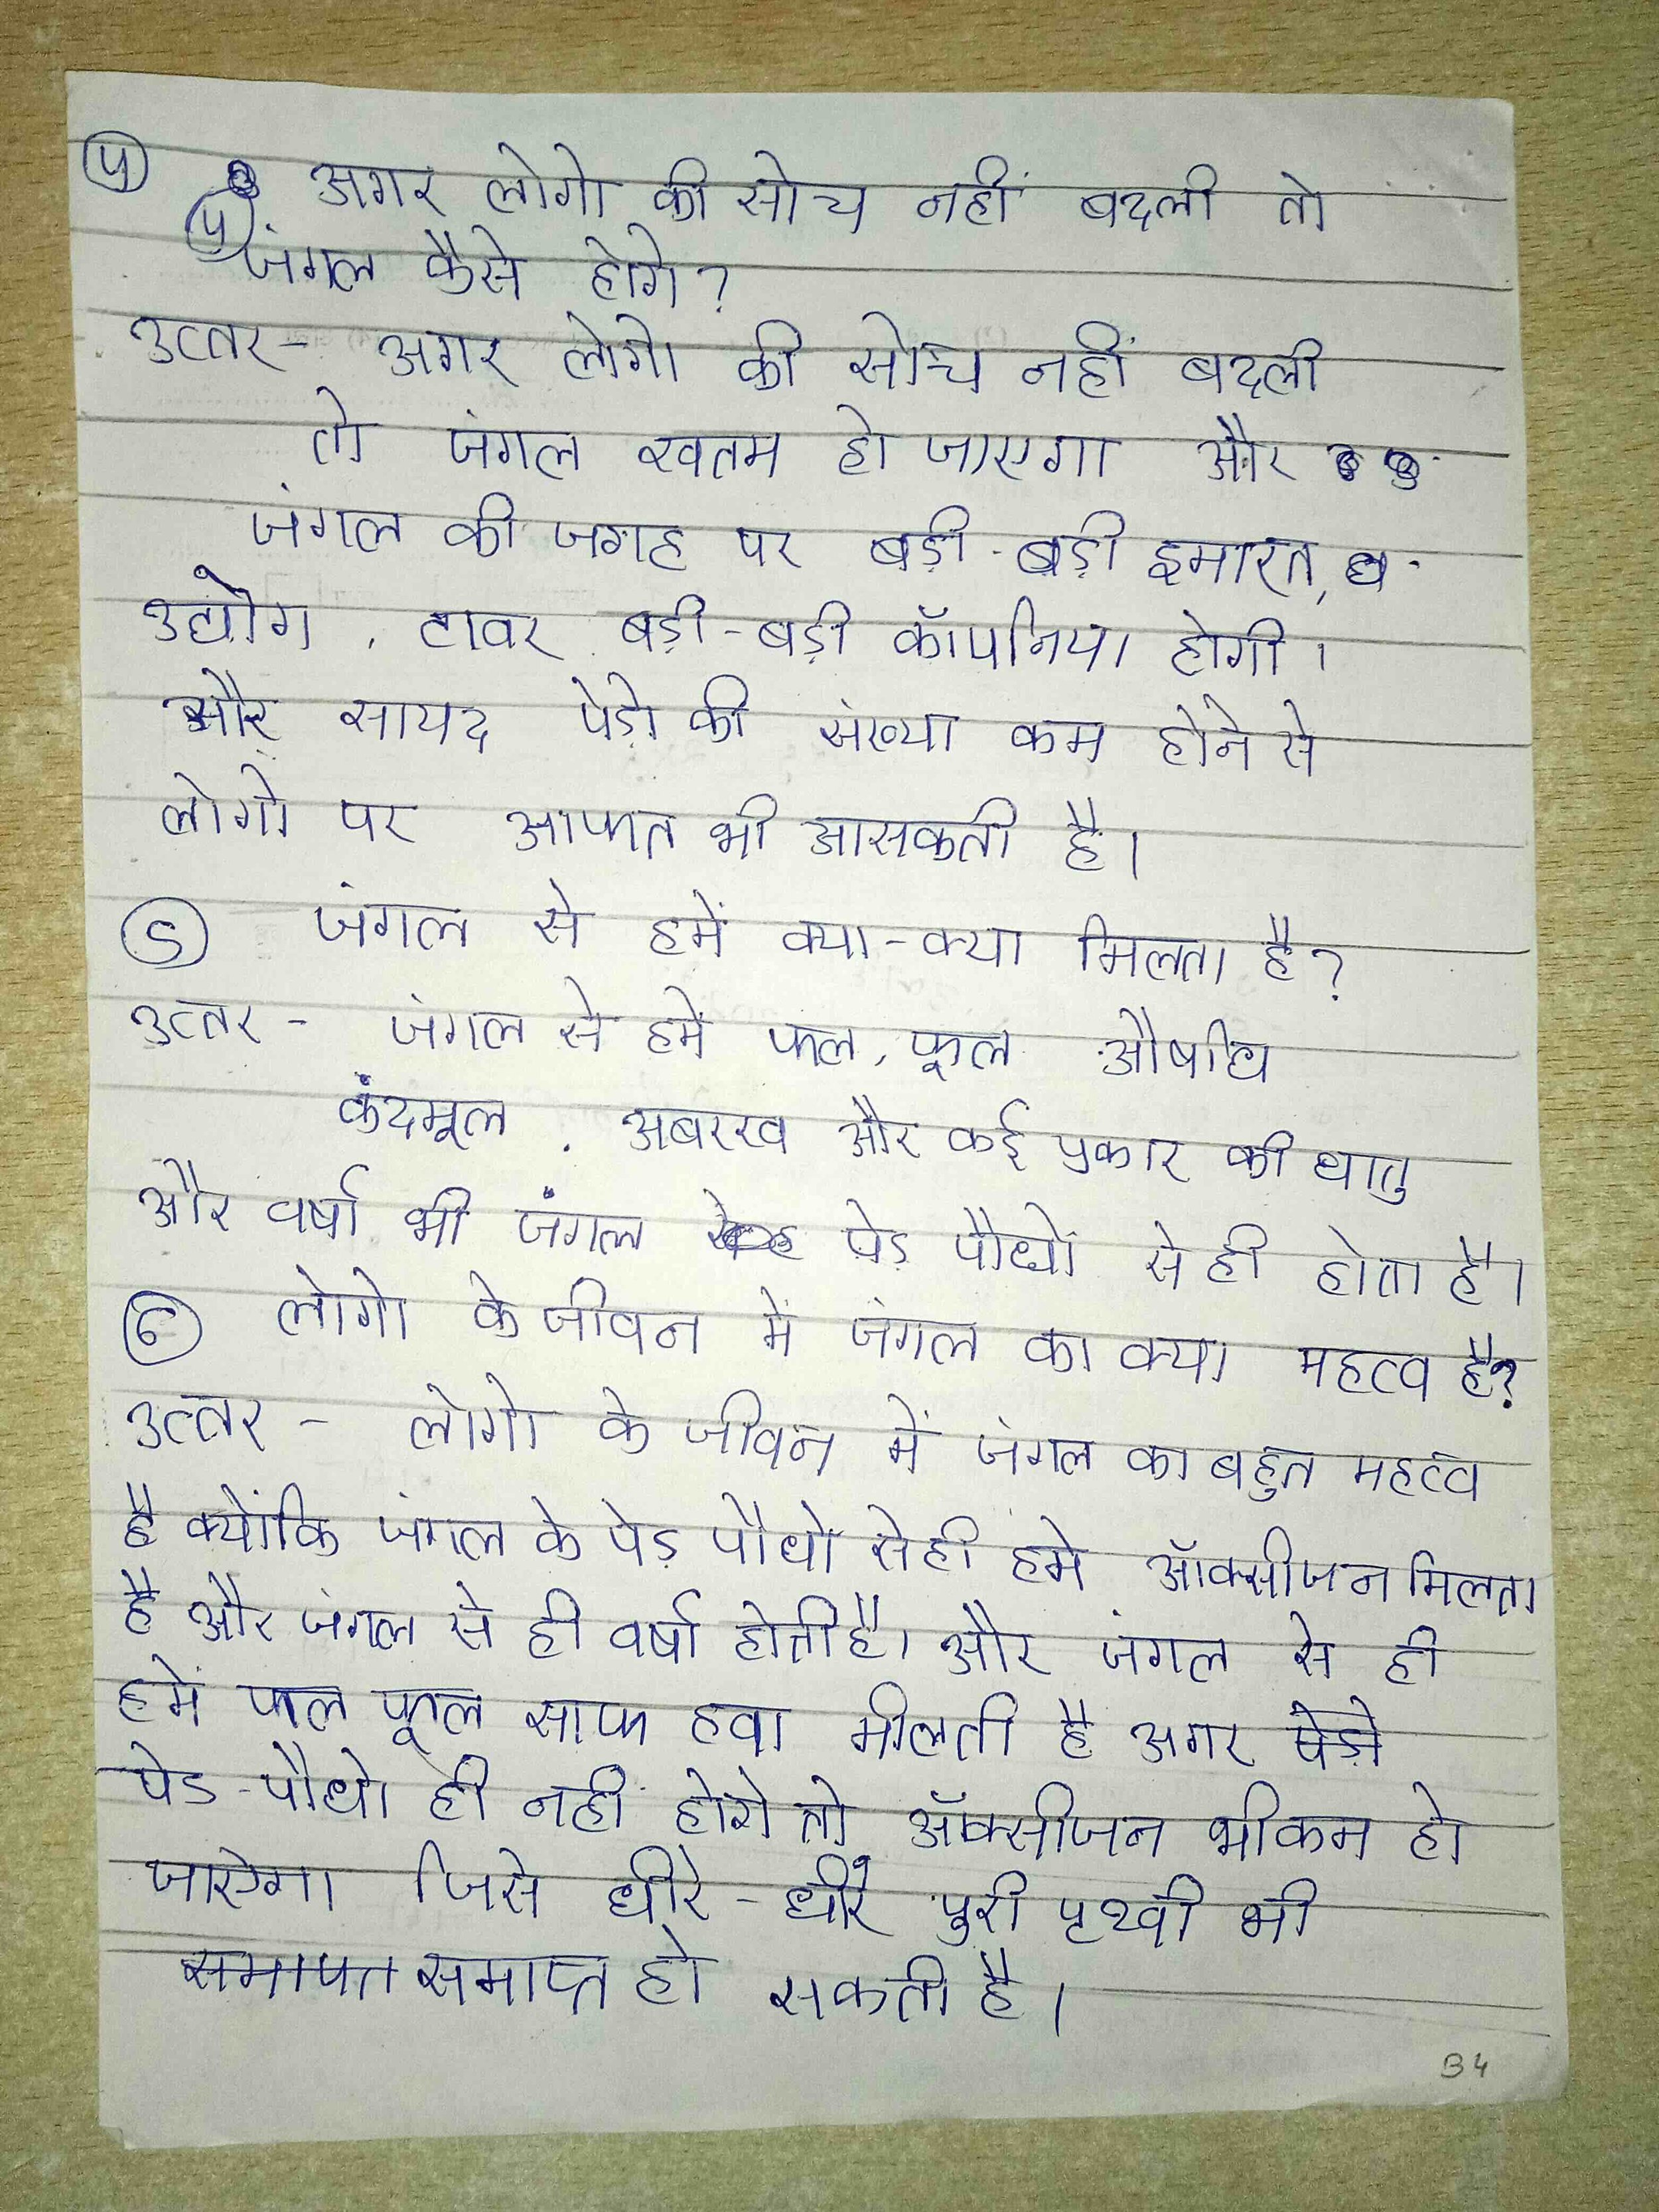 ④ अगर लोगो की सोच नहीं बदली तो
④ जंगल कैसे होगे?
उत्तर - अगर लोगो की सोच नहीं बदली
तो जंगल खतम हो जाएगा और
जंगल की जगह पर बड़ी-बड़ी इमारत,
उद्योग, टावर बड़ी-बड़ी कॉपनिया होगी।
और सायद पेड़ो की संख्या कम होने से
लोगो पर आफत भी आसकती है।
⑤ जंगल से हमें क्या-क्या मिलता है?
उत्तर - जंगल से हमें फल, फूल औषधि
कंदमूल, अबरख और कई प्रकार की धातु
और वर्षा भी जंगल पेड़ पौधों से ही होता है।
⑥ लोगो के जीवन में जंगल का क्या महत्व है?
उत्तर - लोगो के जीवन में जंगल का बहुत महत्व
है क्योंकि जंगल के पेड़ पौधों से ही हमे ऑक्सीजन मिलता
है और जंगल से ही वर्षा होती है। और जंगल से ही
हमें फल फूल साफ हवा मीलती है अगर पेड़ो
पेड-पौधो ही नहीं होगे तो ऑक्सीजन भी कम हो
जाऐगा जिसे धीरे-धीरे पुरी पृथ्वी भी
समापत समाप्त हो सकती है।
B4